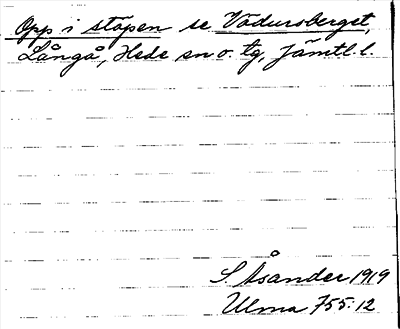 Opp i stöpen se Väduroberget,
Långå, Hede sn o. tg, Jämtl. l.
S. Åsander 1919
Ulma 755:12